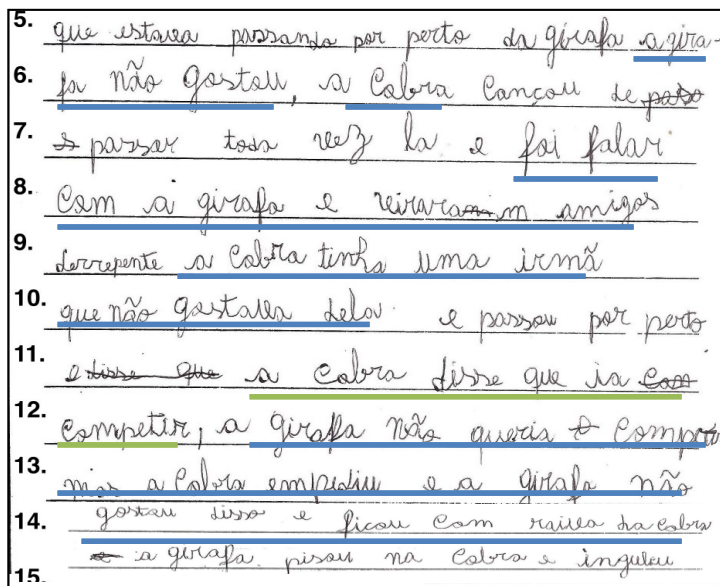 5. que estava passando por perto da girafa a gira-
6. fa não gostou, a Cobra Cançou de
7. passar toda vez la e foi falar
8. Com a girafa e viraram amigos
9. derrepente a Cobra tinha uma irmã
10. que não gostava dela e passou por perto
11. e disse que a cobra disse que ia
12. Competir, a girafa não queria
13. mas a Cobra empediu e a girafa não
14. gostou disso e ficou Com raiva da cobra
a girafa pisou na Cobra e inguliu
15.